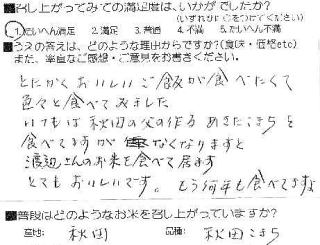 ■召し上がってみての満足度は、いかがでしたか?
(いずれかに○をつけてください)
1.たいへん満足 2.満足 3.普通 4.不満 5.たいへん不満
■うえの答えは、どのような理由からですか?(食味・価格etc)
また、率直なご感想・ご意見をお書きください。
とにかくおいしいご飯が食べたくて
色々と食べてみました
いつもは秋田の父の作るあきたこまちを
食べてますが なくなりますと
渡辺さんのお米を食べて居ます
とてもおいしいです。もう何年も食べてますよ
■普段はどのようなお米を召し上がっていますか?
産地: 秋田 品種: 秋田こまち